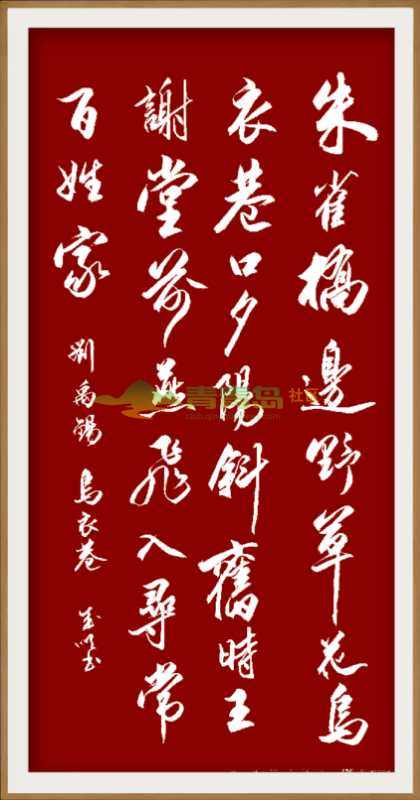 朱雀橋邊野草花烏
衣巷口夕陽斜舊時王
謝堂前燕飛入尋常
百姓家
劉禹錫 烏衣巷
青青岛社区